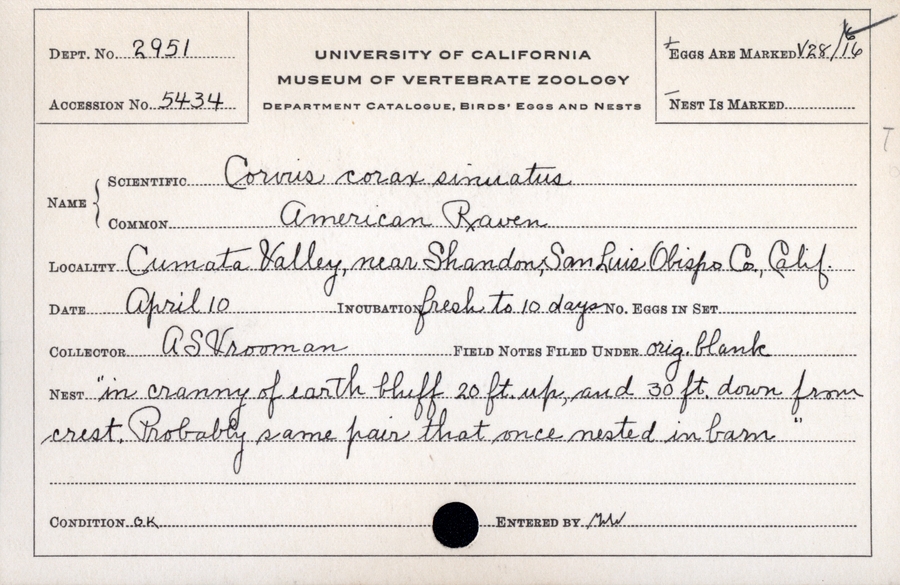 DEPT. No. 2951
ACCESSION No. 5434
UNIVERSITY OF CALIFORNIA
MUSEUM OF VERTEBRATE ZOOLOGY
DEPARTMENT CATALOGUE, BIRDS' EGGS AND NESTS
+EGGS ARE MARKED V28/16
NEST IS MARKED
NAME
SCIENTIFIC Corvus corax sinuatus
COMMON American Raven
LOCALITY Cumata Valley, near Shandon, San Luis Obispo Co., Calif.
DATE April 10 INCUBATION fresh to 10 days No. EGGS IN SET
COLLECTOR AS Vrooman FIELD NOTES FILED UNDER orig. blank
NEST "in cranny of earth bluff 20 ft. up, and 30 ft. down from
crest. Probably same pair that once nested in barn"
CONDITION OK ENTERED BY